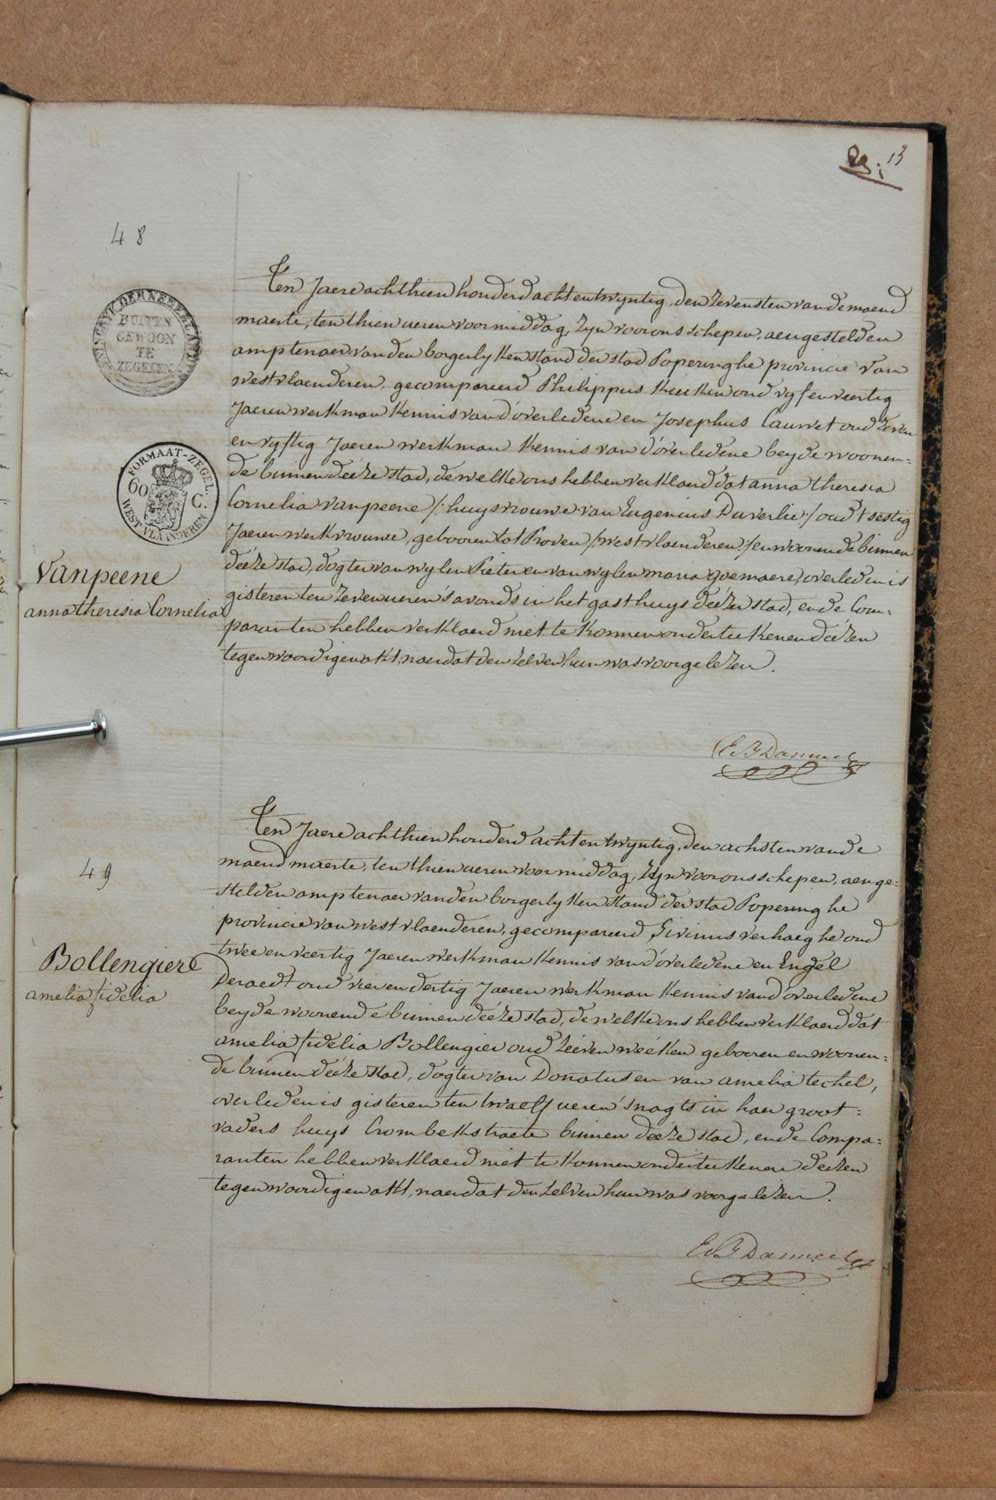 13
48
KONINGRYK DER NEDERLANDEN
BUITEN
GEWOON
TE
ZEGELEN
FORMAAT-ZEGEL.
60 C.
WEST-VLAANDEREN
Vanpeene
anna theresia Cornelia
Ten Jaere achthien honderd acht en twyntig, den zevensten van de maend
maerte, ten thien ueren voormiddag, zyn voor ons schepen, aengestelden
amptenaer van den borgerlyken stand der stad Poperinghe provincie van
westvlaenderen, gecompareerd Philippus Keuken oud vyf en veertig
Jaeren werkman kennis van d'overledene en Josephus Cauwet oud zeven
en vyftig Jaeren werkman kennis van d'overledene beyde woonen-
de binnen deéze stad, de welke ons hebben verklaerd dat anna theresia
Cornelia vanpeene /:huysvrouwe van Eugenius Duverlie:/ oud t'sestig
Jaeren werkvrouwe, gebooren tot Proven /:westvlaenderen:/ en woonende binnen
deéze stad, dogter van wylen Pieter en van wylen maria goemaere, overleden is
gisteren ten zeven ueren s'avonds in het gasthuys deézer stad, en de Com-
paranten hebben verklaerd niet te konnen onderteekenen deézen
tegenwoordigen akt, naer dat den zelven hun was voorgelezen.
49
Bollengier
amelia fidelia
Ten Jaere achthien honderd acht en twyntig, den achsten van de
maend maerte, ten thien ueren voormiddag, zyn voor ons schepen, aenge-
stelden amptenaer van den borgerlyken stand der stad Poperinghe
provincie van westvlaenderen, gecompareerd Livinus verhaeghe oud
twee en veertig Jaeren werkman kennis van d'overledene en Engel
Deraedt oud vier en dertig Jaeren werkman kennis van d'overledene
beyde woonende binnen deéze stad, de welke ons hebben verklaerd dat
amelia fidelia Bollengier oud zeven weéken gebooren en woonen-
de binnen deéze stad, dogter van Donatus en van amelia techel,
overleden is gisteren ten twaelf ueren 'snagts in haer groot-
vaders huys Crombekstraete binnen deéze stad, en de Compa-
ranten hebben verklaerd niet te konnen onderteekenen deézen
tegenwoordigen akt, naer dat den zelven hun was voorgelezen.